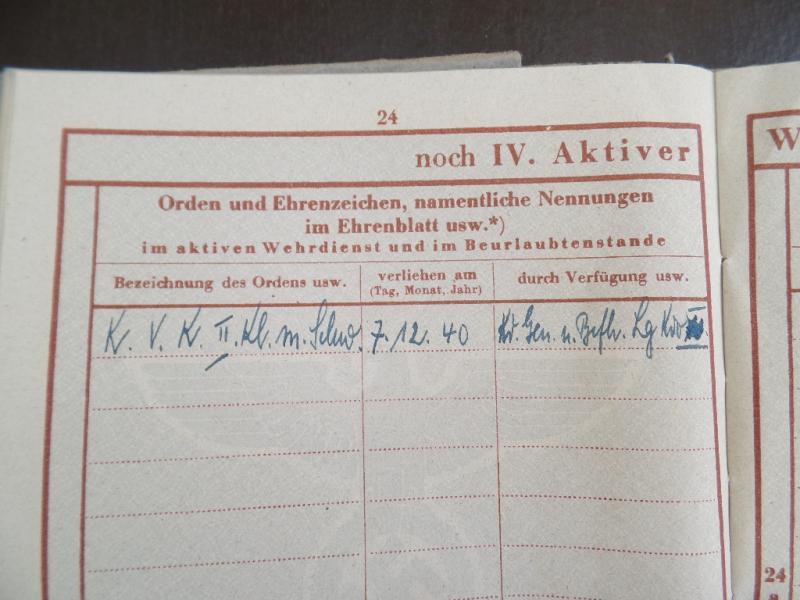 24
noch IV. Aktiver
W
Orden und Ehrenzeichen, namentliche Nennungen
im Ehrenblatt usw.*)
im aktiven Wehrdienst und im Beurlaubtenstande
Bezeichnung des Ordens usw.
verliehen am
(Tag, Monat, Jahr)
durch Verfügung usw.
K. V. K. II. Kl. m. Schw. 7. 12. 40 Gen. u. Befh. Lg Kdo
24
a